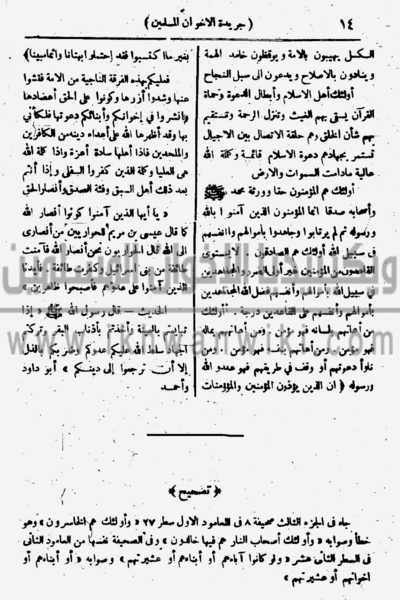 ١٤
( جريدة الاخوان المسلمين )
السكسل يهيبون بالامة ويوقظون خامد الهمة
وينادون بالاصلاح ويدعون الى سبل النجاح
أولئك أهل الاسلام وأبطال الدعوة وحماة
القرآن يسقى بهم الغيث وتنزل الرحمة وتستقيم
بهم شأن الخلق وهم حلقة الاتصال بين الاجيال
تستمر بجهادهم دعوة الاسلام قائمة وكلمة الله
عالية مادامت السموات والارض
أولئك هم المؤمنون حقا وورثة محمد ﷺ
وأصحابه صدقا انما المؤمنون الذين آمنوا بالله
ورسوله ثم لم يرتابوا وجاهدوا بأموالهم وأنفسهم
في سبيل الله أولئك هم الصادقون . لا يستوى
القاعدون من المؤمنين غير أولى الضرر والمجاهدين
في سبيل الله بأموالهم وأنفسهم فضل الله المجاهدين
بأموالهم وأنفسهم على القاعدين درجة . أولئك
من أعانهم بلسانه فهو مؤمن . ومن أعانهم بماله
فهو مؤمن . ومن أعانهم بنفسه فهو مؤمن . ومن
ناوأ دعوتهم أو وقف في طريقهم فهو عدو الله
ورسوله ( ان الذين يؤذون المؤمنين والمؤمنات
بغير ما اكتسبوا فقد احتملوا بهتانا واثما مبينا)
فعليكم بهذه الفرقة الناجية من الامة فقتشوا
عنها وشدوا أزرها وكونوا على الحق أعضادها
وانشروا في إخوانكم وأبنائكم دعوتها فلكأنى
بها وقد أظهرها الله على أعداء دينه من الكافرين
والملحدين فاذا أهلها سادة أعزة واذا كلمة الله
هى العليا وكلمة الذين كفروا السفلى وإذا أنتم
بعد ذلك أهل السبق وفئة الصدق وأنصار الحق
« يا أيها الذين آمنوا كونوا أنصار الله
كما قال عيسى بن مريم للحواريين من أنصارى
الى الله قال الحواريون نحن أنصار الله فآمنت
طائفة من بنى اسرائيل وكفرت طائفة . فأيدنا
الذين آمنوا على عدوهم فأصبحوا ظاهرين »
الحديث — قال رسول الله ﷺ « إذا
تبايعتم بالعينة وأخذتم بأذناب البقر وتركتم
الجهاد سلط الله عليكم عدوكم
إلا أن ترجموا إلى دينكم » أبو داود
وأحمد
﴿ تصحيح ﴾
جاء في الجزء الثالث صحيفة ٨ فى العامود الاول سطر ٢٧ « وأولئك هم الخاسرون » وهو
خطأ وصوابه « وأولئك أصحاب النار هم فيها خالدون » وفى الصحيفة نفسها من العامود الثانى
فى السطر الثانى عشر « ولو كانوا آباءهم أو أبناءهم أو عشيرتهم » وصوابه « أو أبناءهم أو
اخوانهم أو عشيرتهم »
ويكيبيديا الإخوان المسلمون
www.ikhwanwiki.com